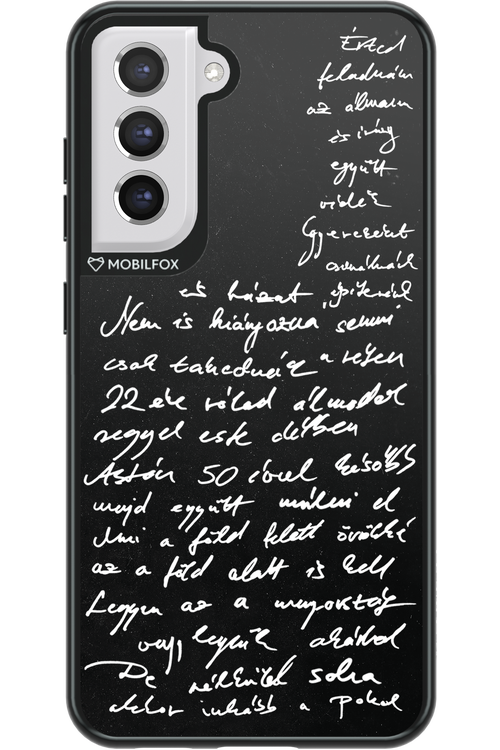 MOBILFOX
Érted
feladnám
az álmam
és így
együtt
vidék
Gyerekeket
csinálnánk
és házat építenénk
Nem is hiányozna semmi
csak takednák a réten
22 éve rólad álmodok
reggel este délben
Aztán 50 évvel később
majd együtt múlni el
Ami a föld felett örökké
az a föld alatt is kell
Legyen az a mennyország
vagy legyünk akárhol
De nélküled soha
akkor inkább a pokol